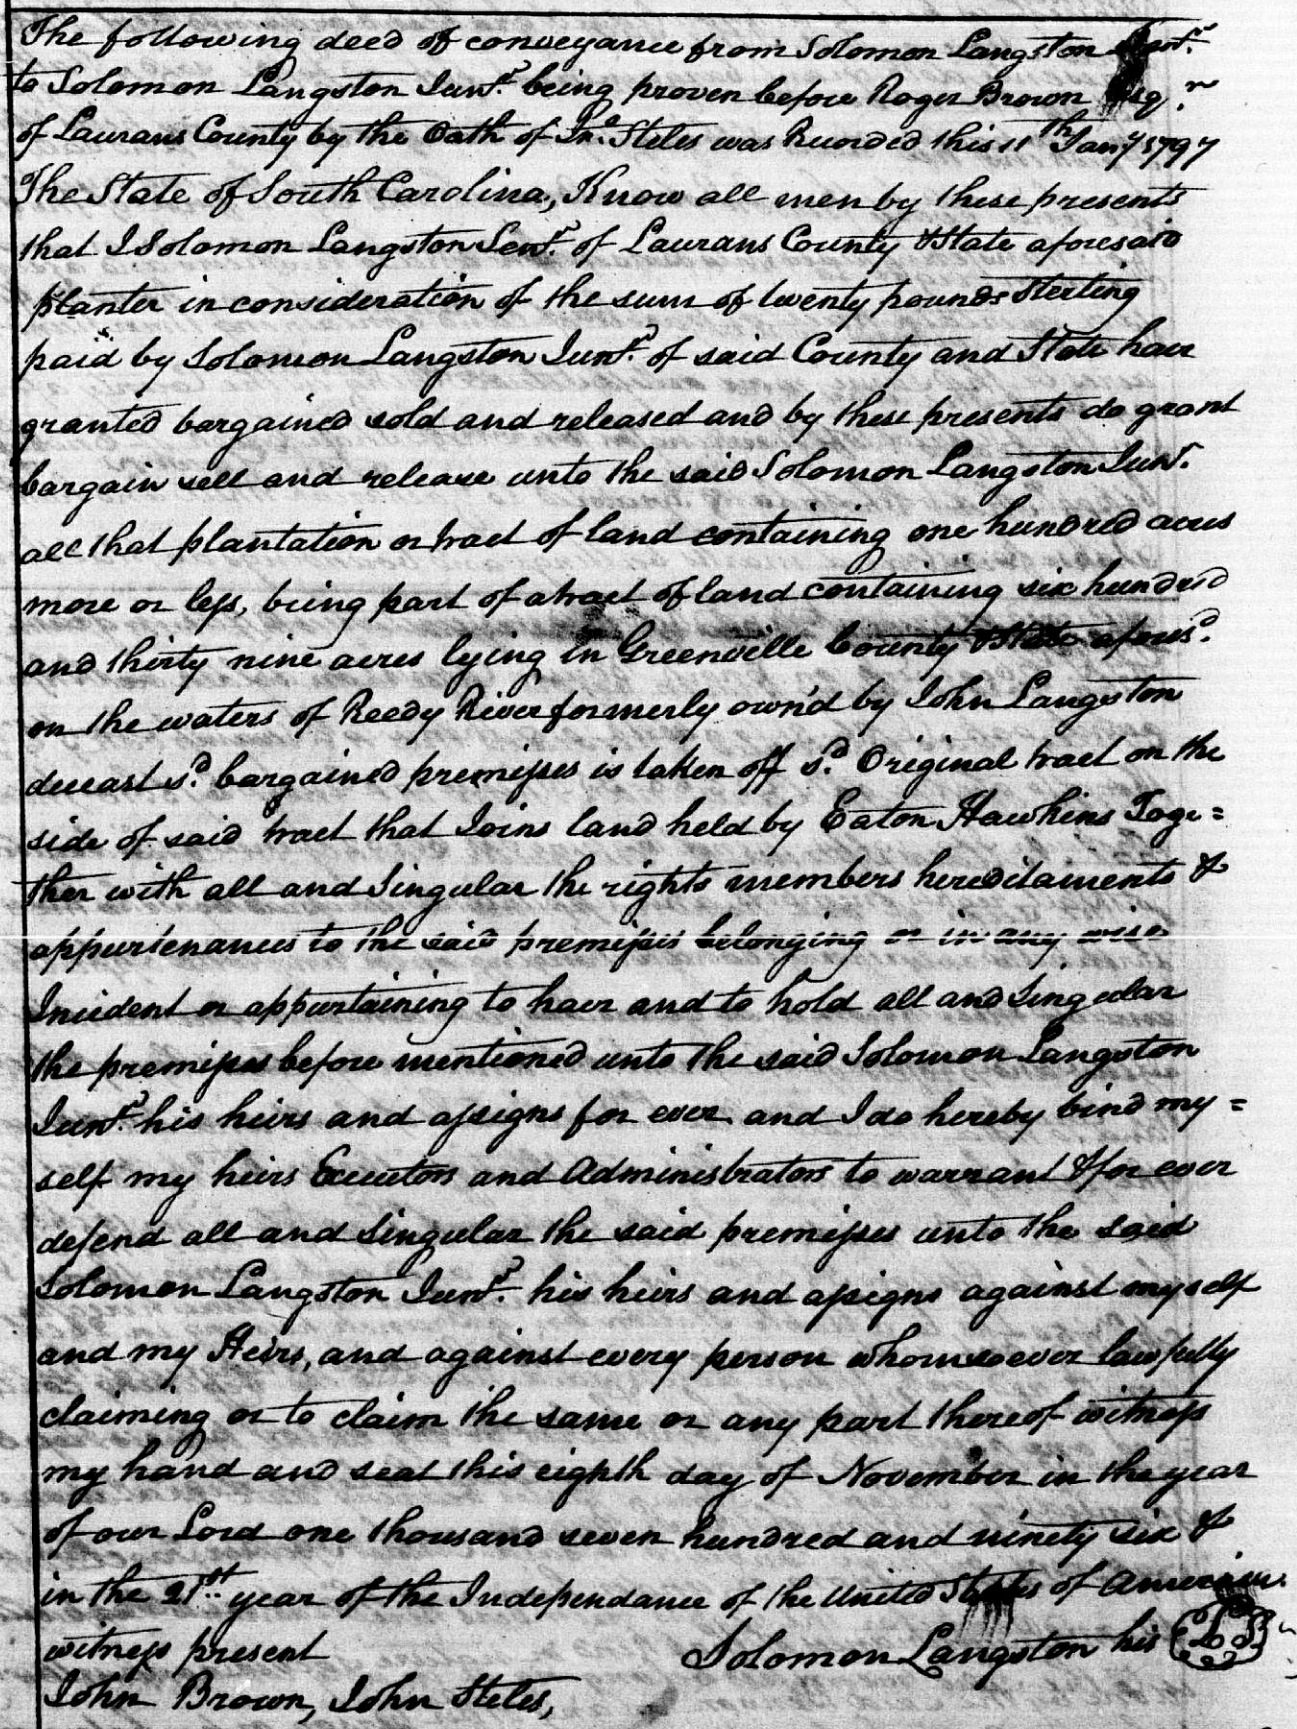 The following deed of conveyance from Solomon Langston Senr.
to Solomon Langston Junr. being proven before Roger Brown Esqr.
of Laurans County by the Oath of Jno. Steles was Recorded this 11th Jany 1797
The State of South Carolina, Know all men by these presents
that I Solomon Langston Senr. of Laurans County & State aforesaid
planter in consideration of the sum of twenty pounds Sterling
paid by Solomon Langston Junr. of said County and State have
granted bargained sold and released and by these presents do grant
bargain sell and release unto the said Solomon Langston Junr.
all that plantation or tract of land containing one hundred acres
more or less, being part of a tract of land containing six hundred
and thirty nine acres lying in Greenville County & State aforesd.
on the waters of Reedy River formerly own'd by John Langston
deceast sd. bargained premisses is taken off sd. Original tract on the
side of said tract that Joins land held by Eaton Hawkins Toge=
ther with all and Singular the rights members hereditaments &
appurtenances to the said premisses belonging or in any wise
Incident or appurtaining to have and to hold all and Singular
the premises before mentioned unto the said Solomon Langston
Junr. his heirs and assigns for ever and I do hereby bind my=
self my heirs Executors and Administrators to warrant & for ever
defend all and Singular the said premisses unto the said
Solomon Langston Junr. his heirs and assigns against myself
and my Heirs, and against every person whomsoever lawfully
claiming or to claim the same or any part thereof witness
my hand and seal this eighth day of November in the year
of our Lord one thousand seven hundred and ninety six &
in the 21st year of the Independance of the United States of America.
witness present Solomon Langston his LS
John Brown, John Steles,